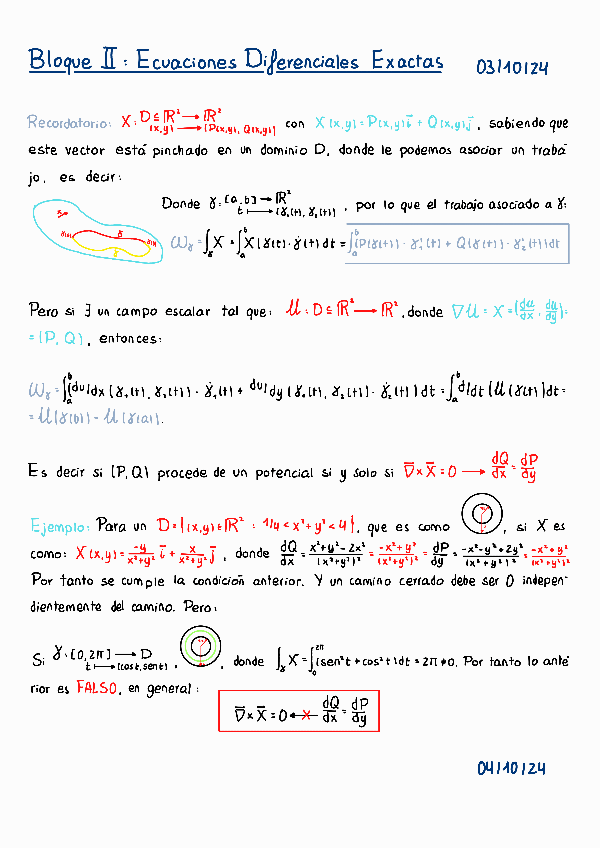 Bloque II: Ecuaciones Diferenciales Exactas 03/10/24
Recordatorio: X: D⊆ℝ² → ℝ² (x,y) ↦ (P(x,y), Q(x,y)) con X(x,y) = P(x,y) i + Q(x,y) j, sabiendo que
este vector está pinchado en un dominio D, donde le podemos asociar un traba-
jo, es decir:
Donde γ: [a,b] → ℝ² t ↦ (γ₁(t), γ₂(t)), por lo que el trabajo asociado a γ:
W_γ = ∫_γ X = ∫_a^b X(γ(t)) · γ̇(t) dt = ∫_a^b (P(γ(t)) · γ₁'(t) + Q(γ(t)) · γ₂'(t)) dt
Pero si ∃ un campo escalar tal que: U: D⊆ℝ² → ℝ², donde ∇U = X = (du/dx, du/dy) =
= (P, Q), entonces:
W_γ = ∫_a^b (du/dx (γ₁(t), γ₂(t)) · γ̇₁(t) + du/dy (γ₁(t), γ₂(t)) · γ̇₂(t)) dt = ∫_a^b d/dt (U(γ(t))) dt =
= U(γ(b)) - U(γ(a)).
Es decir si (P, Q) procede de un potencial si y solo si ∇̄ × X̄ = 0 → dQ/dx = dP/dy
Ejemplo: Para un D = {(x,y) ∈ ℝ² : 1/4 < x² + y² < 4}, que es como , si X es
como: X(x,y) = -y/(x²+y²) i + x/(x²+y²) j, donde dQ/dx = (x²+y²-2x²)/(x²+y²)² = (-x²+y²)/(x²+y²)² = dP/dy = (-x²-y²+2y²)/(x²+y²)² = (-x²+y²)/(x²+y²)²
Por tanto se cumple la condición anterior. Y un camino cerrado debe ser 0 indepen-
dientemente del camino. Pero:
Si γ: [0,2π] → D t ↦ (cos t, sen t), , donde ∫_γ X = ∫_0^{2π} (sen²t + cos²t) dt = 2π ≠ 0. Por tanto lo ante-
rior es FALSO, en general:
∇̄ × X̄ = 0 ←X— dQ/dx = dP/dy
04/10/24